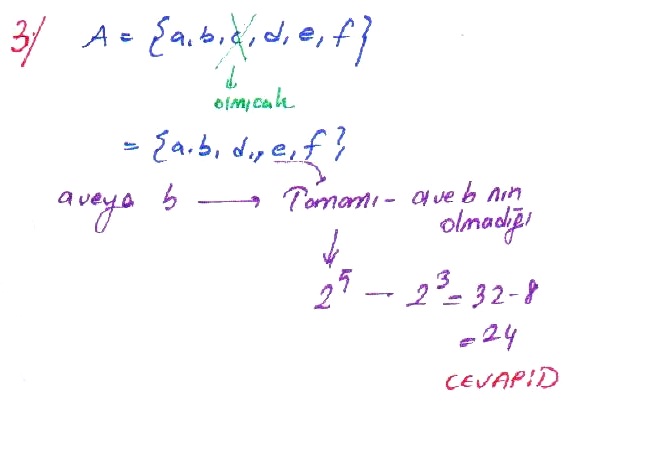 3/ A = {a, b, c, d, e, f}
olmıcak
= {a, b, d, e, f}
a veya b → Tamamı - a ve b nin
olmadığı
2⁵ - 2³ = 32-8
= 24
CEVAP:D